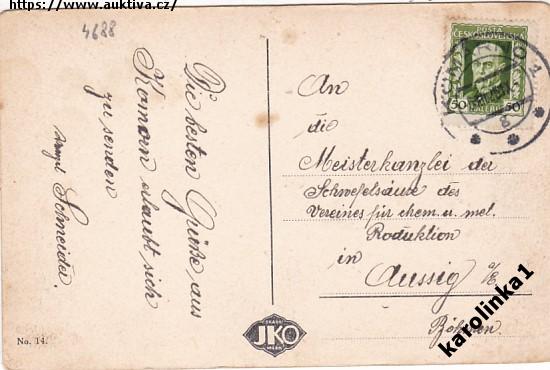 https://www.auktiva.cz/
4688
Die besten Grüße aus
Komorn erlaubt sich
zu senden
Schneider.
No. 14.
JKO
POŠTA
ČESKOSLOVENSKÁ
50 50
An
die
Meisterkanzlei der
Schwefelsäure des
Vereines für chem. u. met.
Roduktion
in
Aussig a/E
Böhmen.
karolinka1